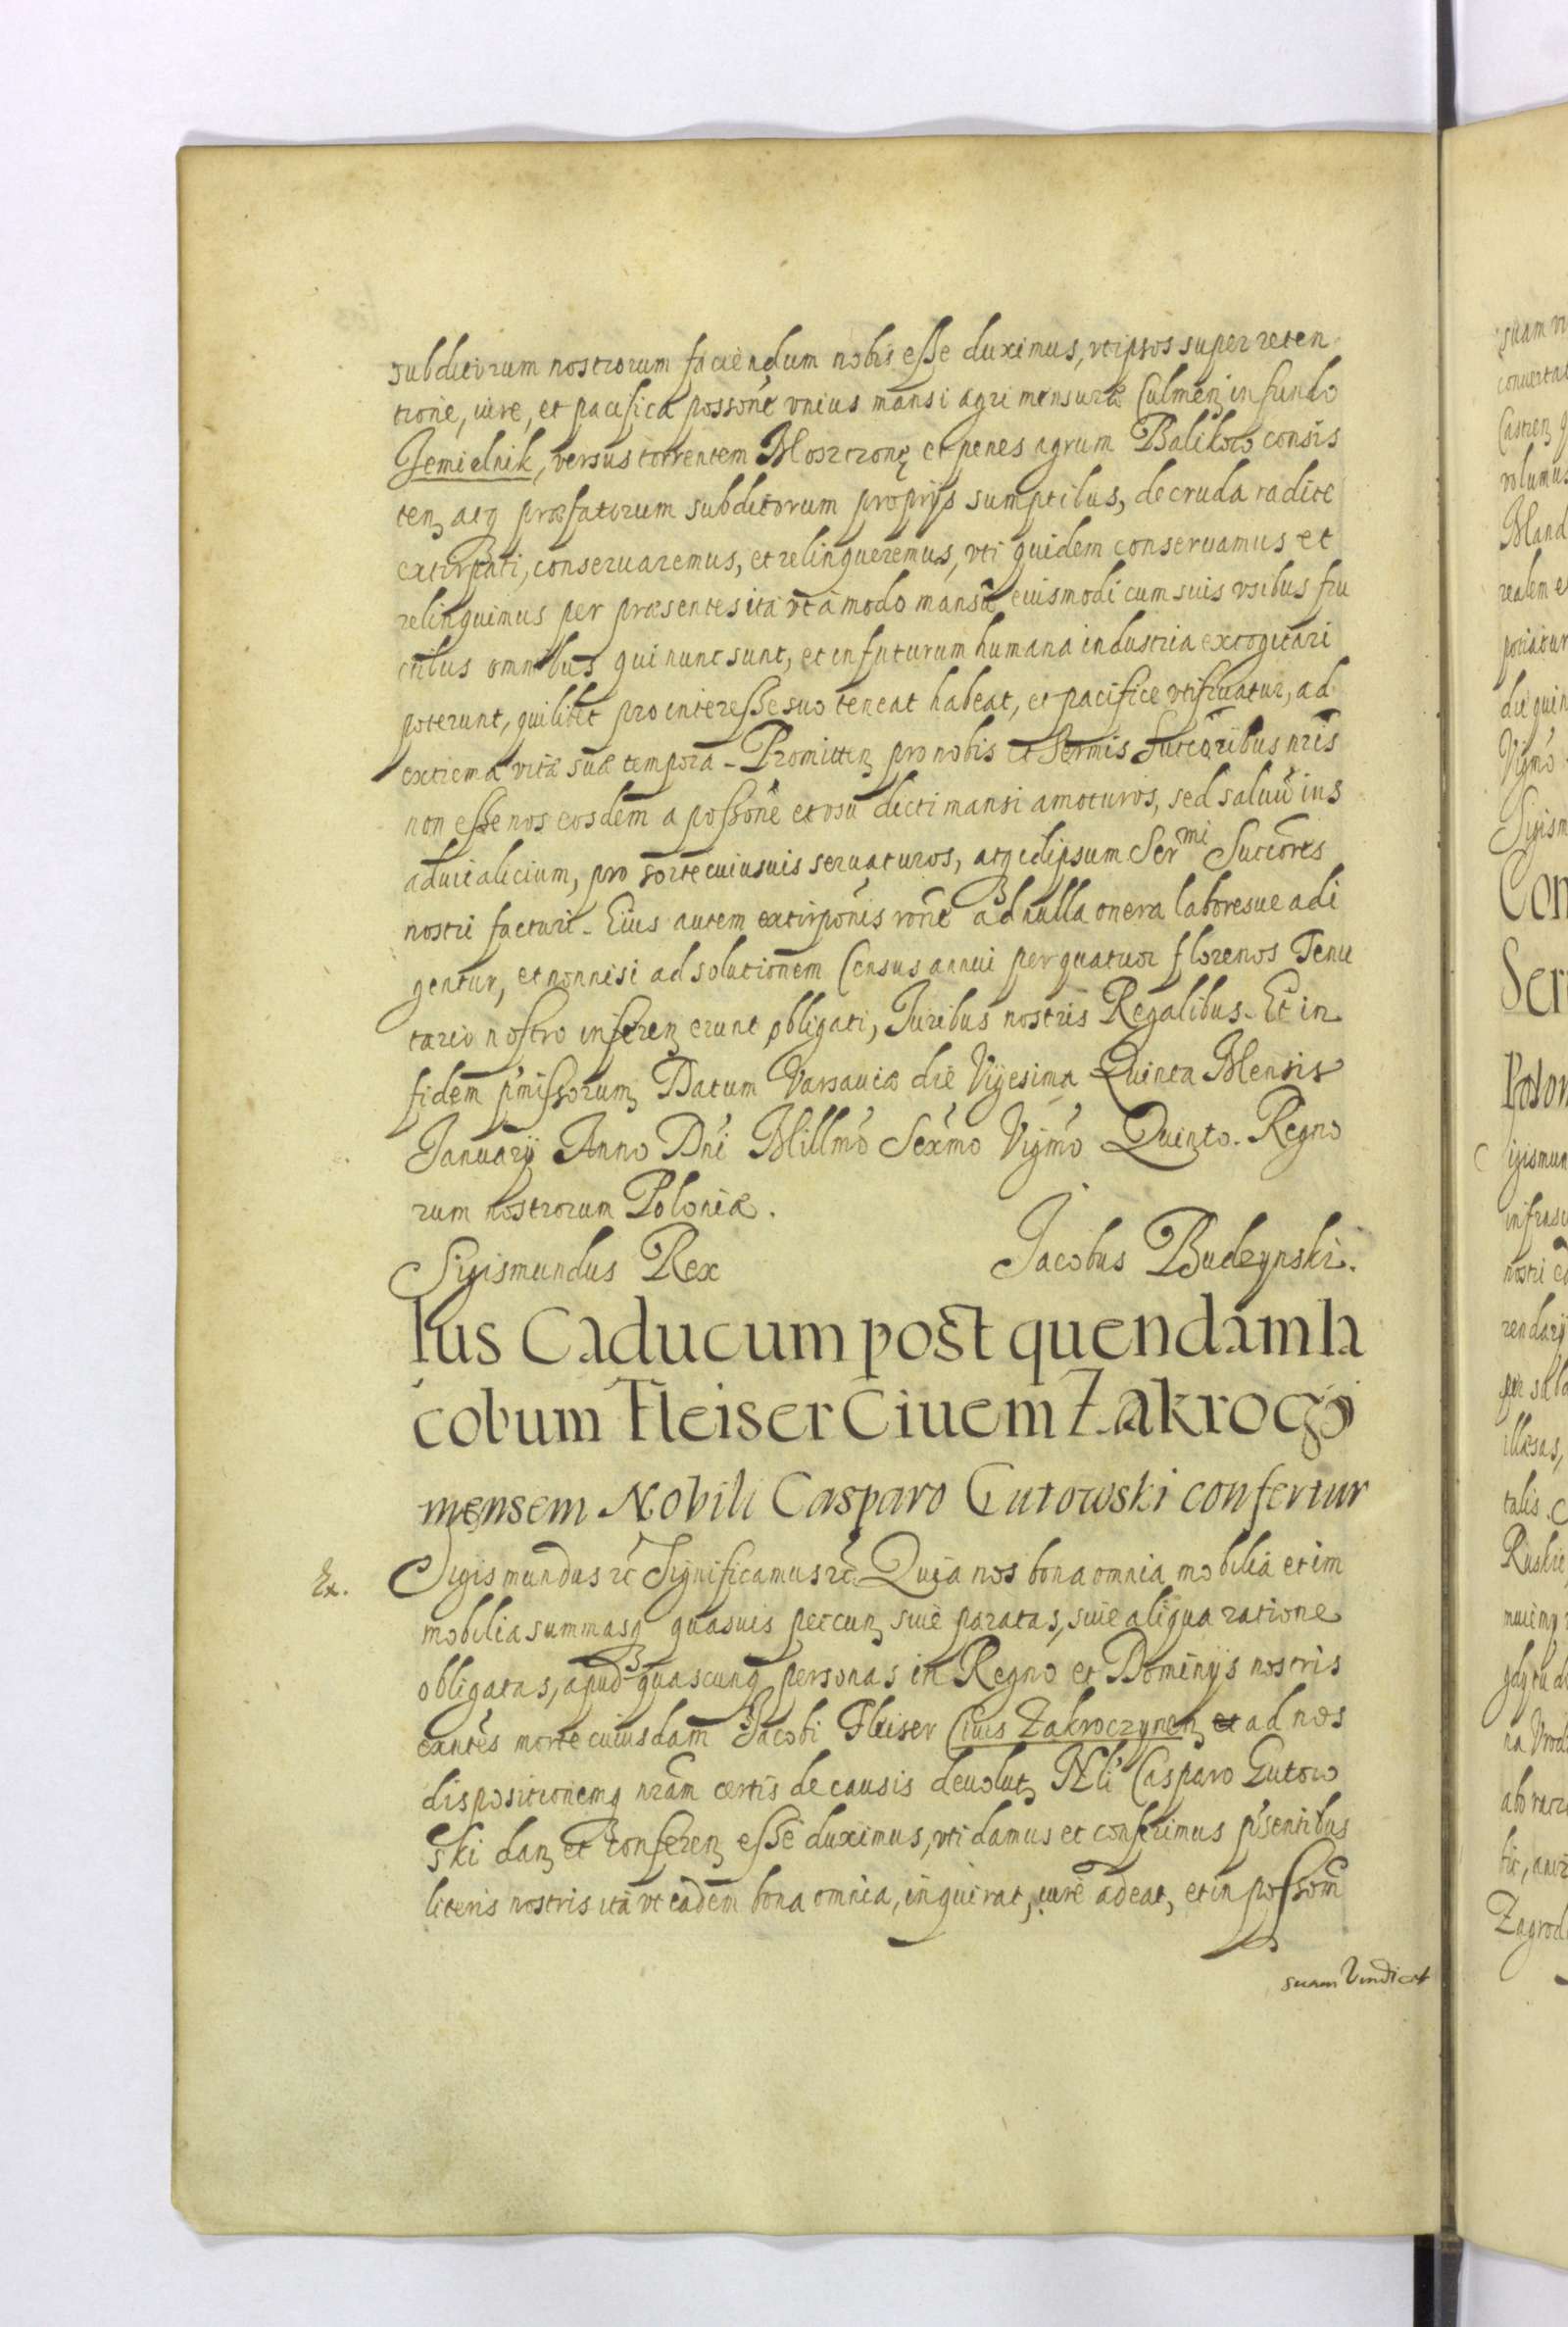 subditorum nostrorum faciendum nobis esse duximus, vti ipsos super reten
tione, iure, et pacifica possōne vnius mansi agri mensuræ Culmeń in fundo
Jemielnik, versus torrentem Moszczonę et penes agrum Balikow consis
teń atq præfatorum subditorum proprijs sumptibus, de cruda radice
extirpati, conseruaremus, et relinqueremus, vti quidem conseruamus et
relinquimus per præsentes ita vt a modo mansū eiusmodi cum suis vsibus fru
ctibus omnibus qui nunc sunt, et in futurum humana industria excogitari
poterunt, quilibet pro interesse suo teneat habeat, et pacifice vtifruatur, ad
extrema vitæ suæ tempora - Promitteń pro nobis et Sermis Succōribus nr̄is
non esse nos eosdem a possōne et vsu dicti mansi amoturos, sed saluū ius
aduitalicium, pro sorte cuiusuis seruaturos, atq idipsum Ser^mi Succōres
nostri facturi - Eius autem extirpōnis rōne ad nulla onera laboresue adi
gentur, et nonnisi ad solutionem Census annui per quatuor florenos Tenu
tario nostro infereń erunt obligati, Juribus nostris Regalibus - Et in
fidem p'missorum Datum Varsauiæ die Vigesima Quinta Mensis
Januarij Anno Dn̄i Millmō Sexmō Vigmō Quinto. Regno
rum nostrorum Poloniæ.
Sigismundus Rex Jacobus Budzynski.
Ius Caducum post quendam Ia
cobum Fleiser Ciuem Zakroczi
mensem Nobili Casparo Gutowski confertur
Ex. Sigismundus &c Significamus &c Quia nos bona omnia mobilia et im
mobilia summasq quasuis pecuń siue paratas, siue aliqua ratione
obligatas, apud quascunq personas in Regno et Dominijs nostris
eantes morte cuiusdam Jacobi Fleiser Ciuis Zakroczyneń et ad nos
dispositionemq nr̄am certis de causis deuoluť Nli Casparo Gutow
ski dań et confereń esse duximus, vti damus et conferimus p'sentibus
literis nostris ita vt eadem bona omnia, inquirat, iure adeat, et in possōm
suam Vindicet